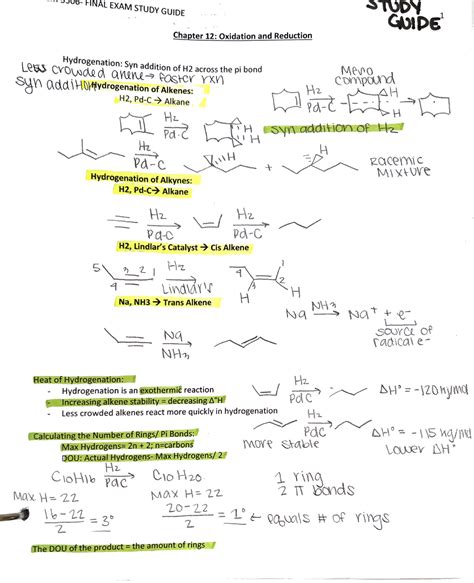 5306- FINAL EXAM STUDY GUIDE
STUDY
GUIDE
Chapter 12: Oxidation and Reduction
Hydrogenation: Syn addition of H2 across the pi bond
Less crowded → faster rxn
Meso
compound
syn addition
Hydrogenation of Alkenes:
H2, Pd-C → Alkane
H2
Pd-C
H
H
H2
Pd-C
H
H
syn addition of H2
H2
Pd-C
H
+
H
Racemic
Mixture
Hydrogenation of Alkynes:
H2, Pd-C→ Alkane
H2
Pd-C
H2
Pd-C
H2, Lindlar's Catalyst → Cis Alkene
5 4 3 2 1
H2
Lindlar's
4 3 2 1
H H
Na, NH3 → Trans Alkene
Na NH3 → Na+ + e-
source of
radical e-
Na
NH3
Heat of Hydrogenation:
- Hydrogenation is an exothermic reaction
- Increasing alkene stability = decreasing Δ°H
- Less crowded alkenes react more quickly in hydrogenation
H2
Pd-C
ΔH° = -120
Calculating the Number of Rings/ Pi Bonds:
Max Hydrogens= 2n + 2; n=carbons
DOU: Actual Hydrogens- Max Hydrogens/ 2
more stable
H2
PdC
ΔH° = -115
Lower ΔH°
C10H16 H2 PdC C10H20
1 ring
2 π bonds
Max H = 22
Max H = 22
16-22 / 2 = 3°
20-22 / 2 = 1° ← equals # of rings
The DOU of the product = the amount of rings